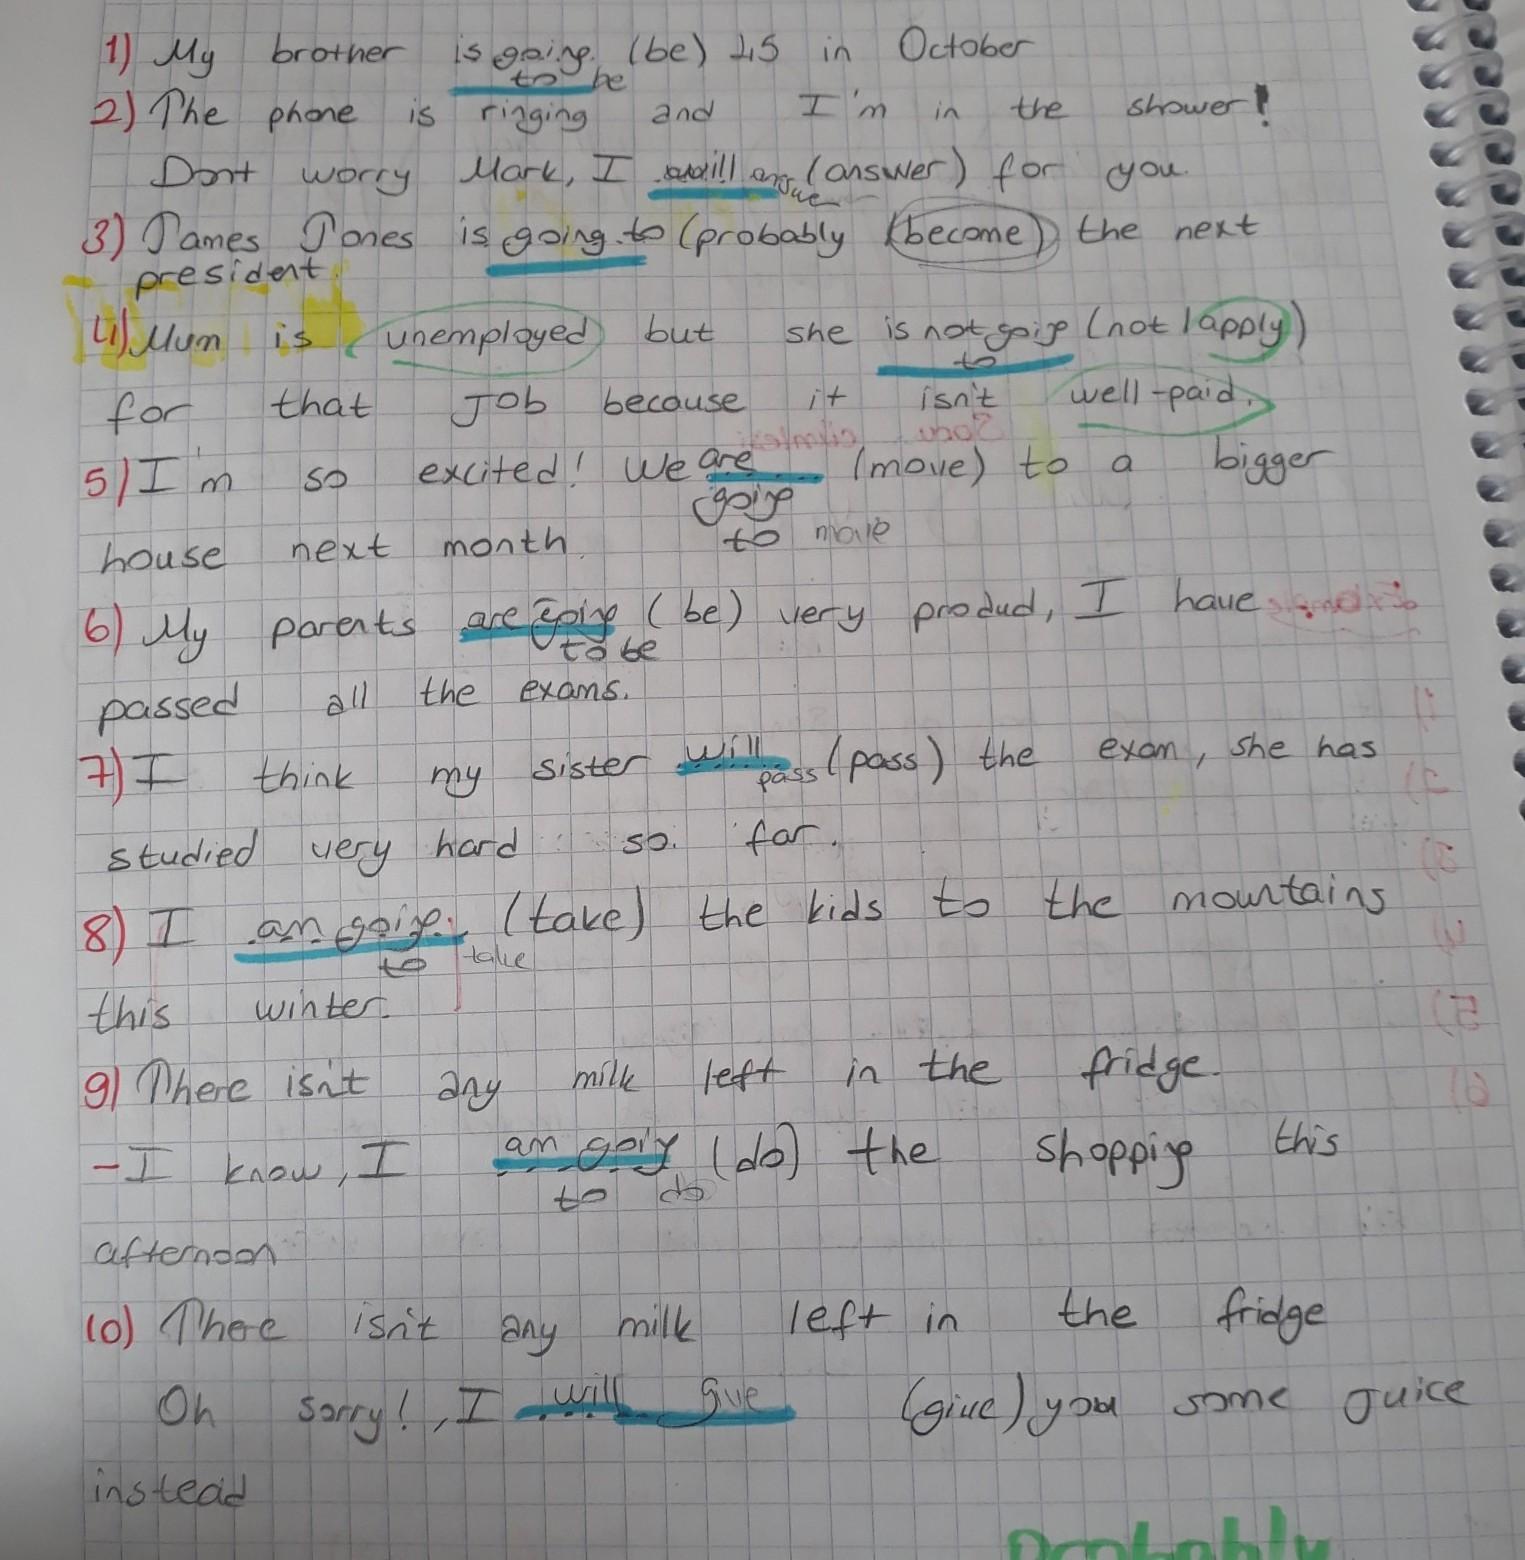 1) My brother is going (be) 15 in October
to be
2) The phone is ringing and I'm in the shower!
Don't worry Mark, I will (answer) for you.
3) James Jones is going to (probably (become)) the next
president.
4) Mum is (unemployed) but she is not going (not / apply)
to
for that Job because it isn't well-paid.
5) I'm so excited! We are (move) to a bigger
going
to move
house next month.
6) My parents are going (be) very produd, I have
to be
passed all the exams.
7) I think my sister will (pass) the exam, she has
pass
studied very hard so far.
8) I am going (take) the kids to the mountains
to take
this winter.
9) There isn't any milk left in the fridge.
- I know, I am going (do) the shopping this
to do
afternoon
10) There isn't any milk left in the fridge
Oh sorry!, I will give (give) you some Juice
instead
Probably